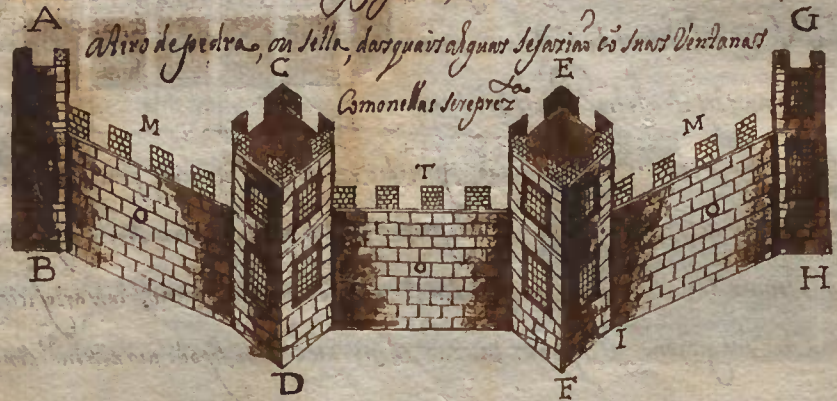 A G
atiro de pedra, ou sella, das quais alguas se fariaõ cõ suas Ventanas
C E
Como nellas se reprez.ta
M M
T
O O O
B H
I
D F